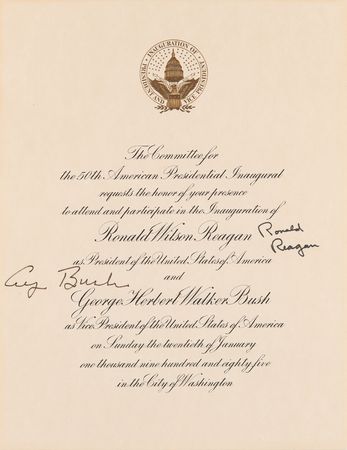 INAUGURATION OF
PRESIDENT AND
VICE PRESIDENT
The Committee for
the 50th American Presidential Inaugural
requests the honor of your presence
to attend and participate in the Inauguration of
Ronald Wilson Reagan
Ronald
Reagan
as President of the United States of America
and
Bush
George Herbert Walker Bush
as Vice President of the United States of America
on Sunday the twentieth of January
one thousand nine hundred and eighty five
in the City of Washington